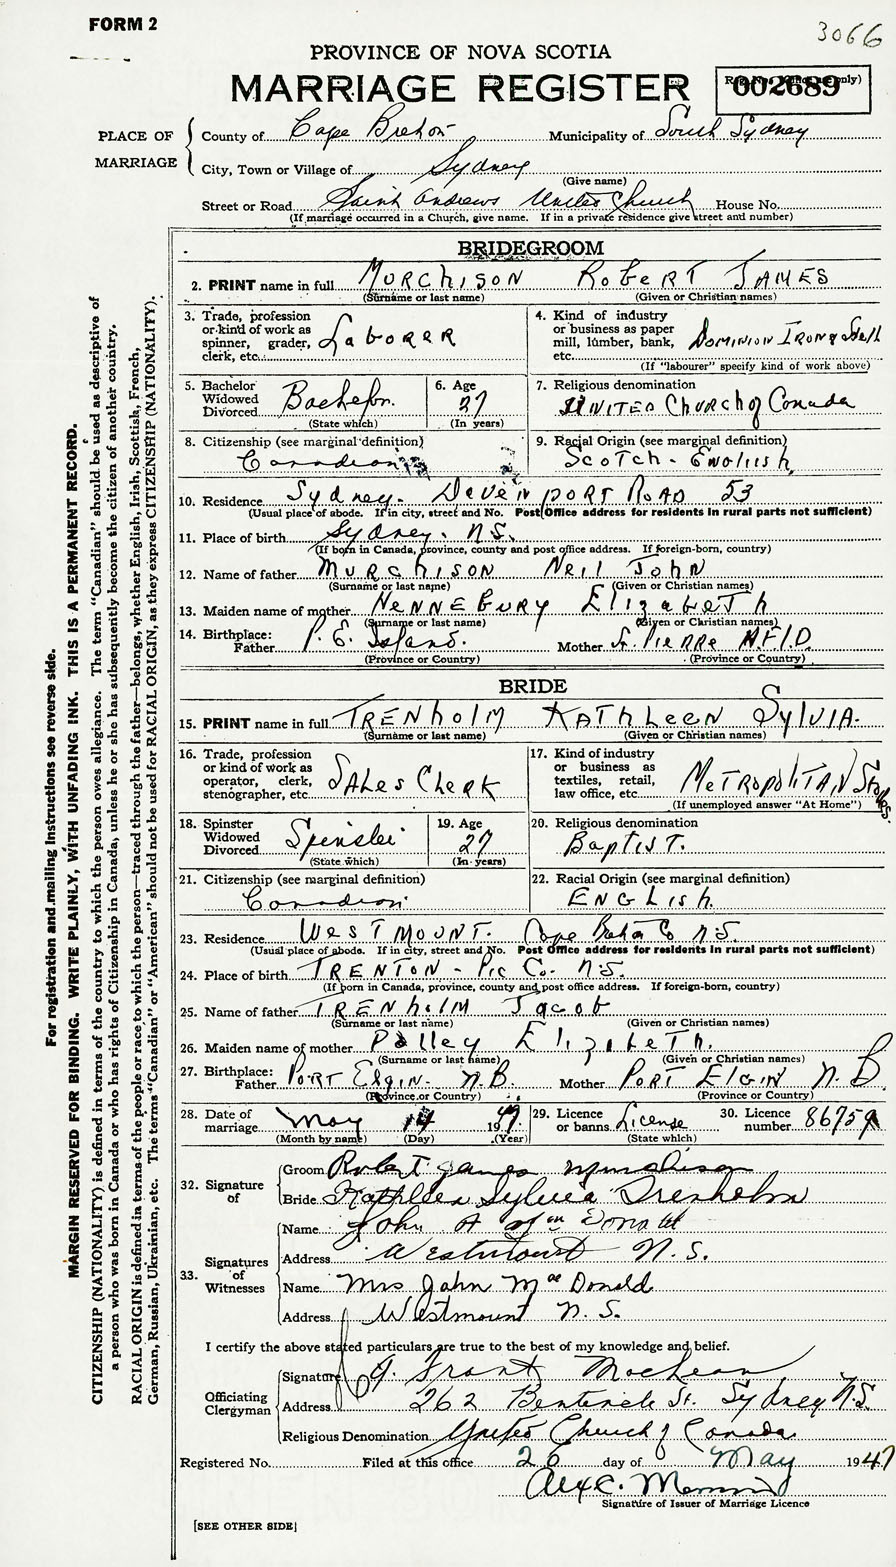 FORM 2
3066
PROVINCE OF NOVA SCOTIA
MARRIAGE REGISTER
002689
PLACE OF MARRIAGE
County of Cape Breton Municipality of South Sydney
City, Town or Village of Sydney
(Give name)
Street or Road Saint Andrews United Church House No.
(If marriage occurred in a Church, give name. If in a private residence give street and number)
BRIDEGROOM
2. PRINT name in full MURCHISON ROBERT JAMES
(Surname or last name) (Given or Christian names)
3. Trade, profession or kind of work as spinner, grader, clerk, etc. LABORER
4. Kind of industry or business as paper mill, lumber, bank, etc. DOMINION IRON & Stell
(If "labourer" specify kind of work above)
5. Bachelor Widowed Divorced Bachelor
(State which)
6. Age 27
(In years)
7. Religious denomination UNITED CHURCH of Canada
8. Citizenship (see marginal definition) Canadian
9. Racial Origin (see marginal definition) SCOTCH - ENGLISH
10. Residence Sydney - DEVENPORT ROAD 53
(Usual place of abode. If in city, street and No. Post Office address for residents in rural parts not sufficient)
11. Place of birth Sydney. N.S.
(If born in Canada, province, county and post office address. If foreign-born, country)
12. Name of father MURCHISON NEIL JOHN
(Surname or last name) (Given or Christian names)
13. Maiden name of mother HENNEBURY ELIZABETH
(Surname or last name) (Given or Christian names)
14. Birthplace: Father P.E. Island. Mother St. PIERRE
(Province or Country) (Province or Country)
BRIDE
15. PRINT name in full TRENHOLM KATHLEEN SYLVIA.
(Surname or last name) (Given or Christian names)
16. Trade, profession or kind of work as operator, clerk, stenographer, etc. SALES CLERK
17. Kind of industry or business as textiles, retail, law office, etc. METROPOLITAN Stores.
(If unemployed answer "At Home")
18. Spinster Widowed Divorced Spinster
(State which)
19. Age 27
(In years)
20. Religious denomination BAPTIST.
21. Citizenship (see marginal definition) Canadian
22. Racial Origin (see marginal definition) ENGLISH.
23. Residence WESTMOUNT. Cape Breton Co N.S.
(Usual place of abode. If in city, street and No. Post Office address for residents in rural parts not sufficient)
24. Place of birth TRENTON - Pic Co. N.S.
(If born in Canada, province, county and post office address. If foreign-born, country)
25. Name of father TRENHOLM JACOB
(Surname or last name) (Given or Christian names)
26. Maiden name of mother Polley ELIZABETH.
(Surname or last name) (Given or Christian names)
27. Birthplace: Father PORT ELGIN. N.B. Mother PORT ELGIN N.B
(Province or Country) (Province or Country)
28. Date of marriage May 14 1947
(Month by name) (Day) (Year)
29. Licence or banns License
(State which)
30. Licence number 86759
32. Signature of
Groom Robert James Murchison
Bride Kathleen Sylvia Trenholm
33. Signatures of Witnesses
Name John A MacDonald
Address Westmount N.S.
Name Mrs John MacDonald
Address Westmount N.S.
I certify the above stated particulars are true to the best of my knowledge and belief.
Officiating Clergyman
Signature Grant MacLean
Address 262 Bentinck St. Sydney N.S.
Religious Denomination United Church of Canada
Registered No. Filed at this office 20 day of May 1947
Alex C.
Signature of Issuer of Marriage Licence
[SEE OTHER SIDE]
For registration and mailing instructions see reverse side.
MARGIN RESERVED FOR BINDING. WRITE PLAINLY, WITH UNFADING INK. THIS IS A PERMANENT RECORD.
CITIZENSHIP (NATIONALITY) is defined in terms of the country to which the person owes allegiance. The term "Canadian" should be used as descriptive of
a person who was born in Canada or who has rights of Citizenship in Canada, unless he or she has subsequently become the citizen of another country.
RACIAL ORIGIN is defined in terms of the people or race to which the person—traced through the father—belongs, whether English, Irish, Scottish, French,
German, Russian, Ukrainian, etc. The terms "Canadian" or "American" should not be used for RACIAL ORIGIN, as they express CITIZENSHIP (NATIONALITY).